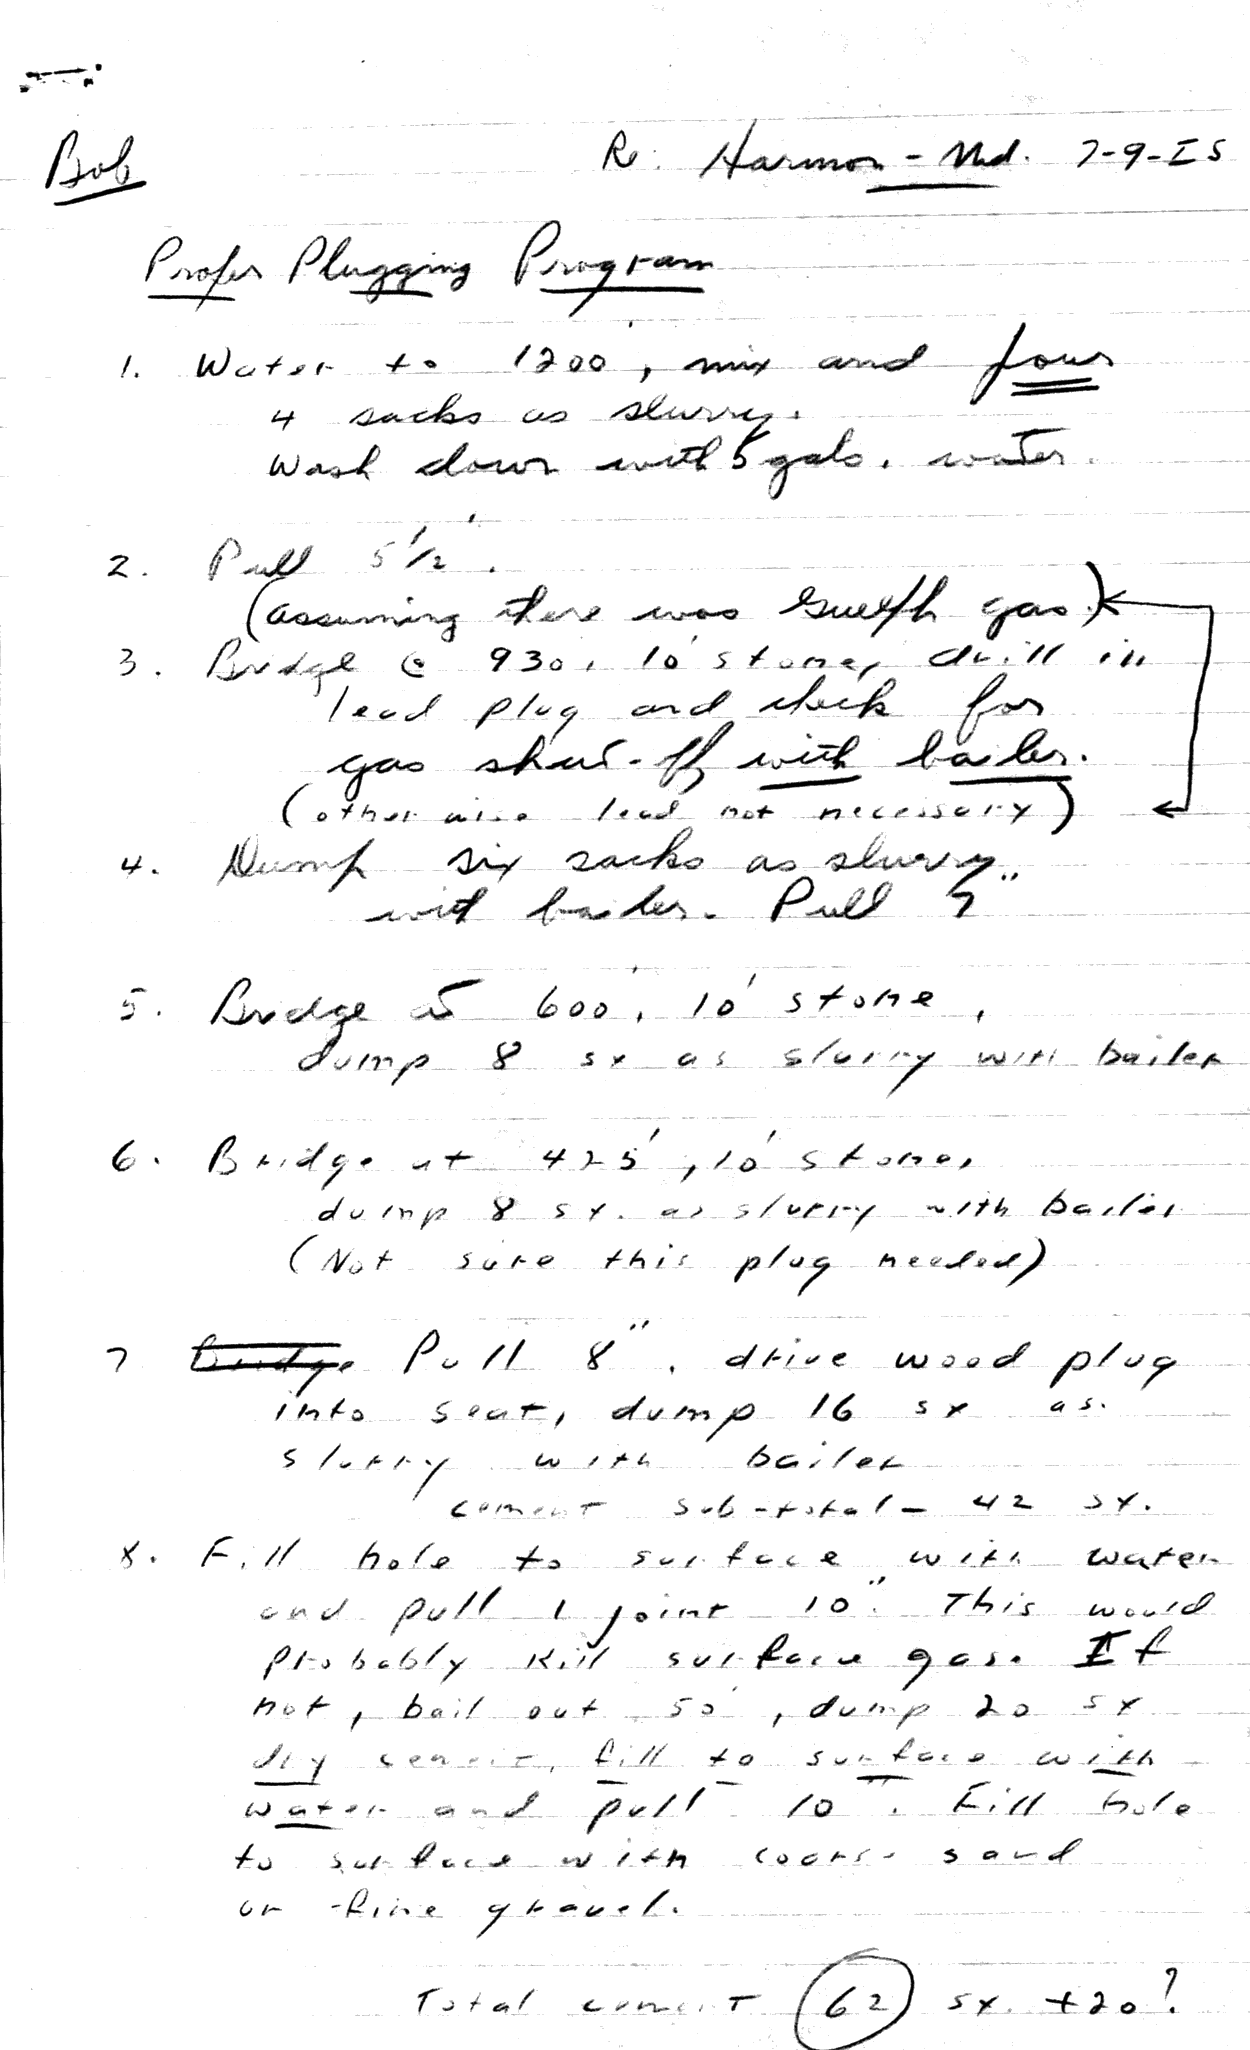 Bob
Re: Harmon - Md. 7-9-IS
Proper Plugging Program
1. Water to 1200', mix and pour
4 sacks as slurry.
Wash down with 5 gals. water.
2. Pull 5 1/2".
(assuming there was Guelph gas.)
3. Bridge @ 930, 10' stone, drill in
lead plug and check for
gas shut-off with bailer.
(otherwise lead not necessary)
4. Dump six sacks as slurry
with bailer. Pull 7"
5. Bridge at 600', 10' stone,
dump 8 sx as slurry with bailer
6. Bridge at 425', 10' stone,
dump 8 sx. as slurry with bailer
(Not sure this plug needed)
7 Bridge Pull 8", drive wood plug
into seat, dump 16 sx as.
slurry with bailer
cement sub-total - 42 sx.
8. Fill hole to surface with water
and pull 1 joint 10". This would
probably kill surface gas. If
not, bail out 50', dump 20 sx
dry cement, fill to surface with
water and pull 10". Fill hole
to surface with coarse sand
or fine gravel.
Total cement 62 sx. +20?